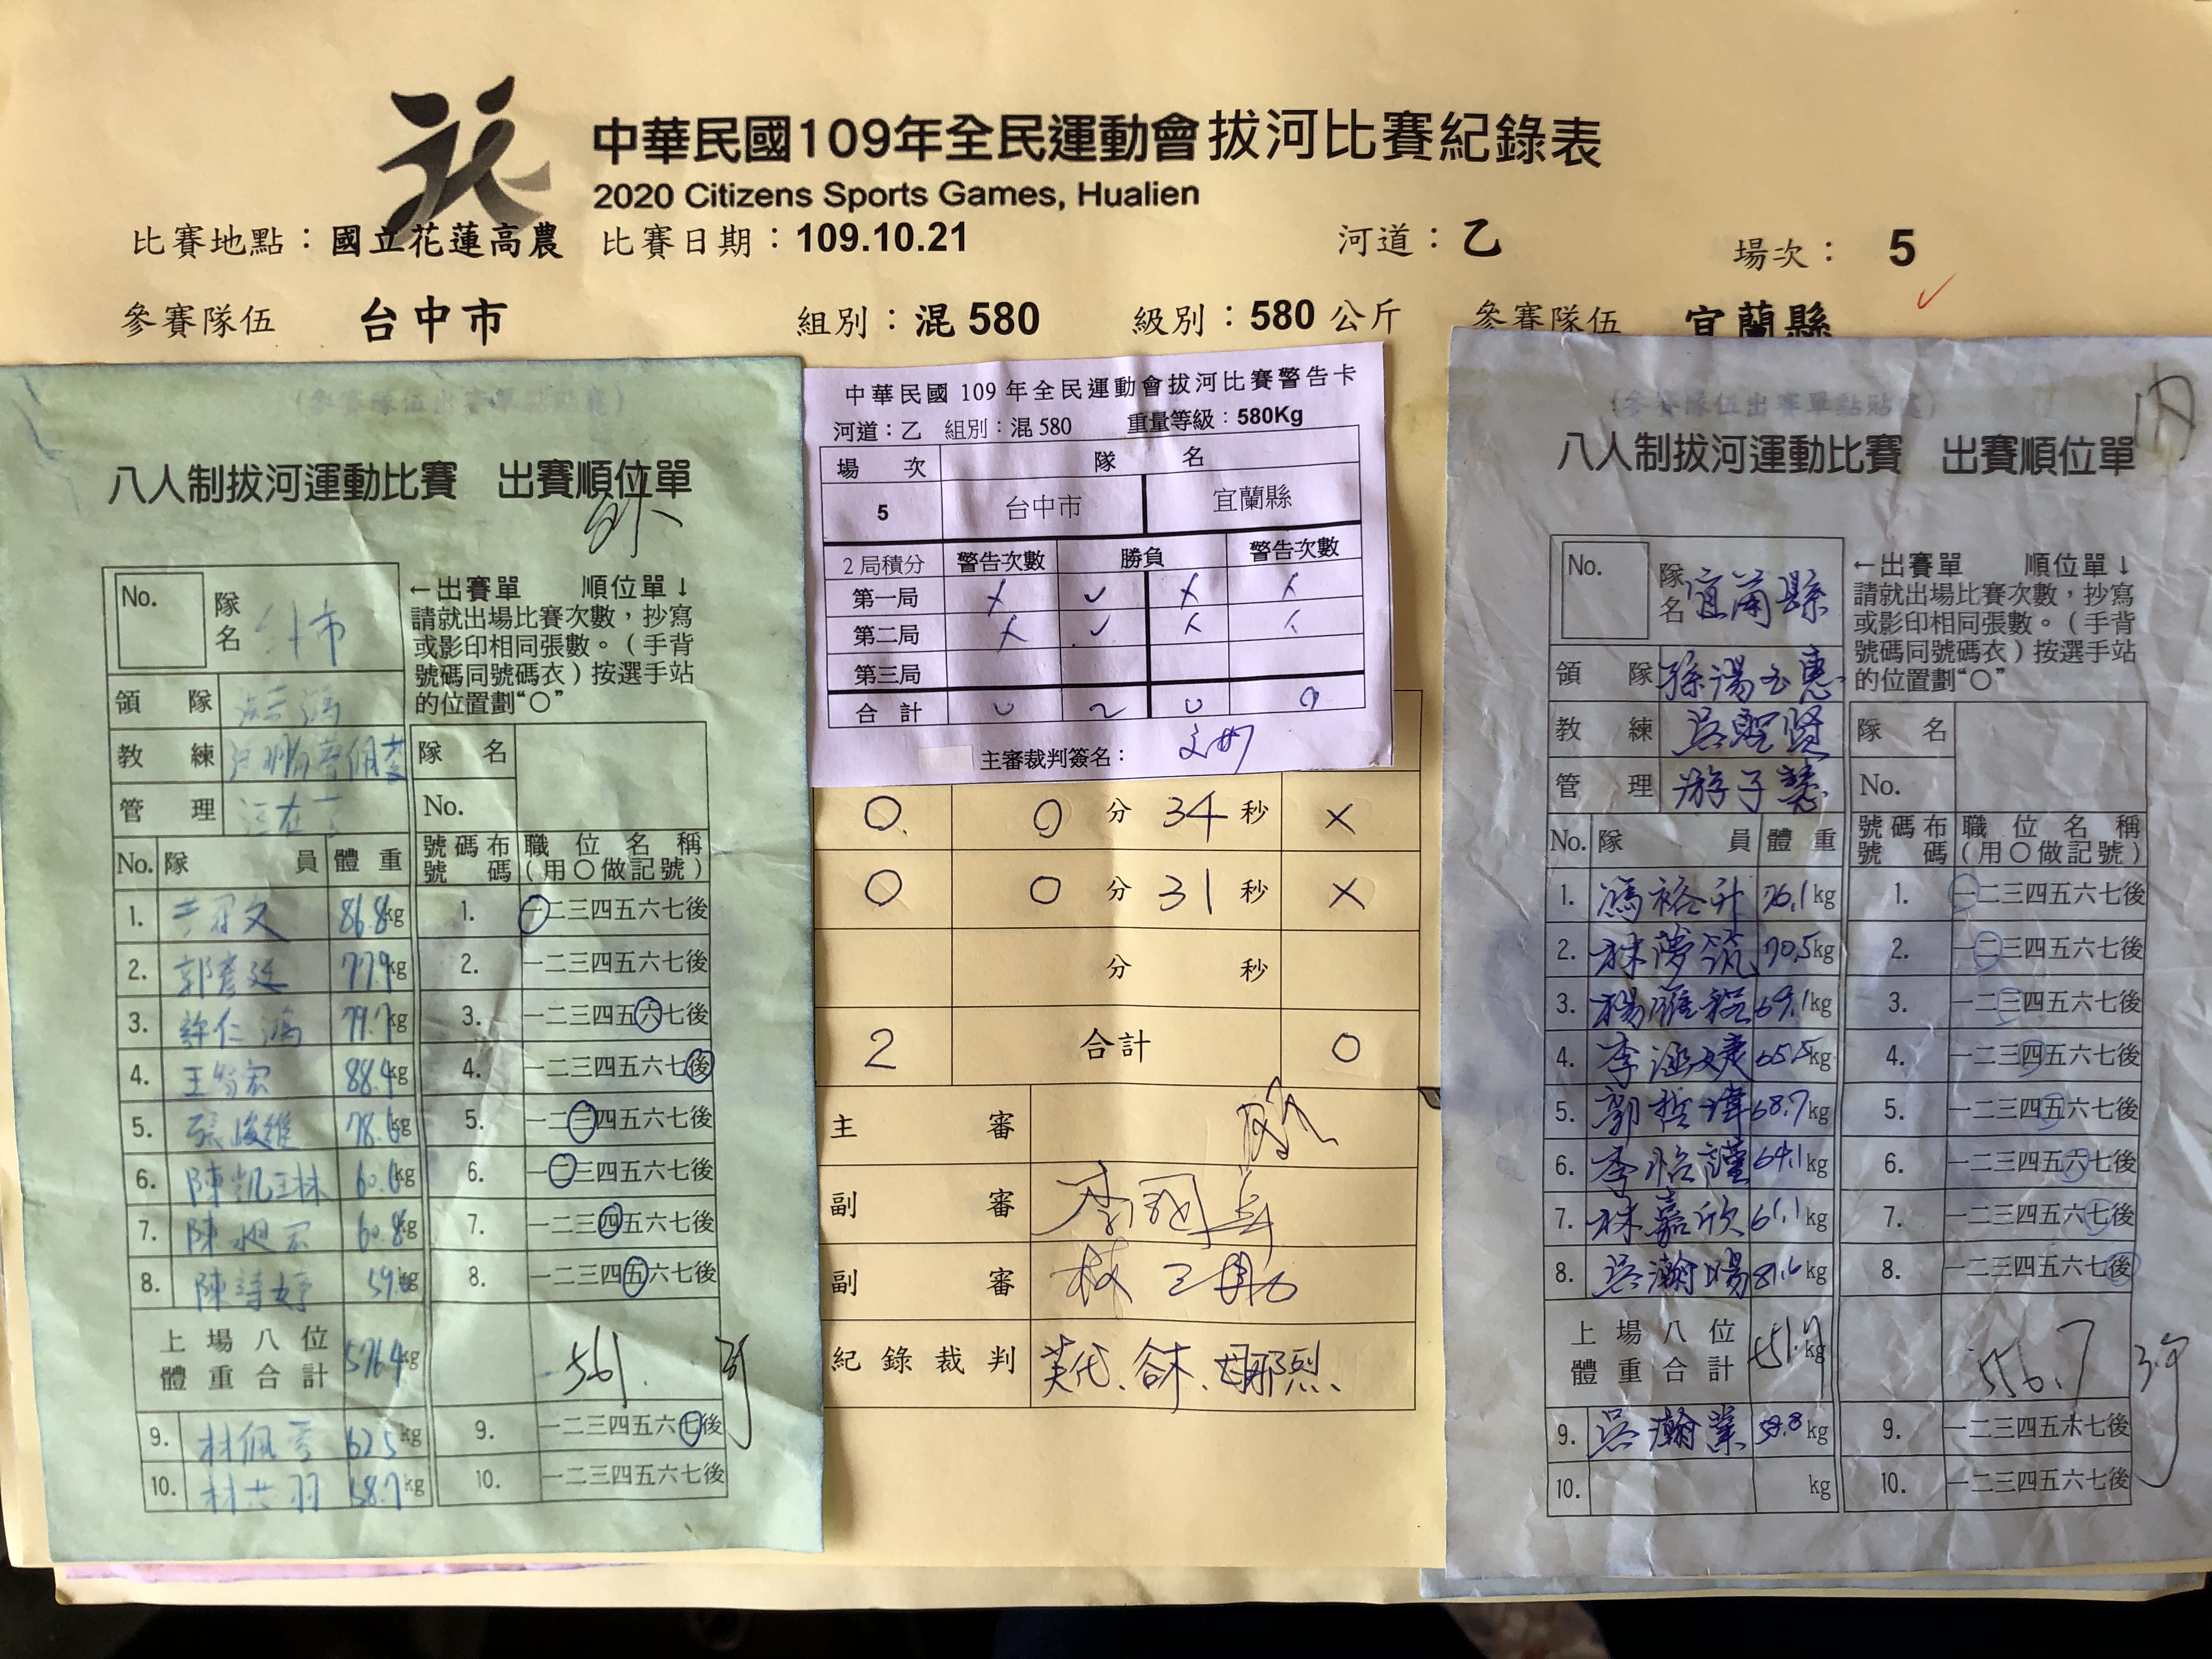 中華民國109年全民運動會拔河比賽紀錄表
2020 Citizens Sports Games, Hualien
比賽地點：國立花蓮高農 比賽日期：109.10.21 河道：乙 場次：5
參賽隊伍 台中市 組別：混580 級別：580公斤 參賽隊伍 宜蘭縣
(參賽隊伍出賽單黏貼處)
八人制拔河運動比賽 出賽順位單
No. 隊名
←出賽單 順位單↓
請就出場比賽次數，抄寫
或影印相同張數。（手背
號碼同號碼衣）按選手站
的位置劃“○”
領隊
教練
管理
隊名
No.
No. 隊員 體重 號碼布號碼 職位名稱(用○做記號)
1. 86.8kg 1. 一二三四五六七後
2. 郭彥廷 77.9kg 2. 一二三四五六七後
3. 許仁鴻 79.7kg 3. 一二三四五六七後
4. 88.4kg 4. 一二三四五六七後
5. 張峻維 78.6kg 5. 一二三四五六七後
6. 陳凱琳 60.6kg 6. 一二三四五六七後
7. 60.8kg 7. 一二三四五六七後
8. 陳詩婷 kg 8. 一二三四五六七後
上場八位
體重合計 576.4kg 561.
9. 林佩雩 62.5kg 9. 一二三四五六七後
10. 58.7kg 10. 一二三四五六七後
中華民國109年全民運動會拔河比賽警告卡
河道：乙 組別：混580 重量等級：580Kg
場次 隊名
5 台中市 宜蘭縣
2局積分 警告次數 勝負 警告次數
第一局 × ✓ × ×
第二局 × ✓ × ×
第三局
合計 0 2 0 0
主審裁判簽名：
0 0分34秒 ×
0 0分31秒 ×
分 秒
2 合計 0
主審
副審
副審 林三助
紀錄裁判
(參賽隊伍出賽單黏貼處)
八人制拔河運動比賽 出賽順位單
No. 隊名 宜蘭縣
←出賽單 順位單↓
請就出場比賽次數，抄寫
或影印相同張數。（手背
號碼同號碼衣）按選手站
的位置劃“○”
領隊 孫湯玉惠
教練 吳聖賢
管理 游子慧
隊名
No.
No. 隊員 體重 號碼布號碼 職位名稱(用○做記號)
1. 馮裕升 76.1kg 1. 一二三四五六七後
2. 林夢筑 70.5kg 2. 一二三四五六七後
3. 69.1kg 3. 一二三四五六七後
4. 65.5kg 4. 一二三四五六七後
5. 郭哲瑋 68.7kg 5. 一二三四五六七後
6. 李怡謹 64.1kg 6. 一二三四五六七後
7. 林嘉欣 61.1kg 7. 一二三四五六七後
8. 吳瀚陽 81.6kg 8. 一二三四五六七後
上場八位
體重合計 kg 556.7
9. 吳瀚業 58.8kg 9. 一二三四五六七後
10. kg 10. 一二三四五六七後